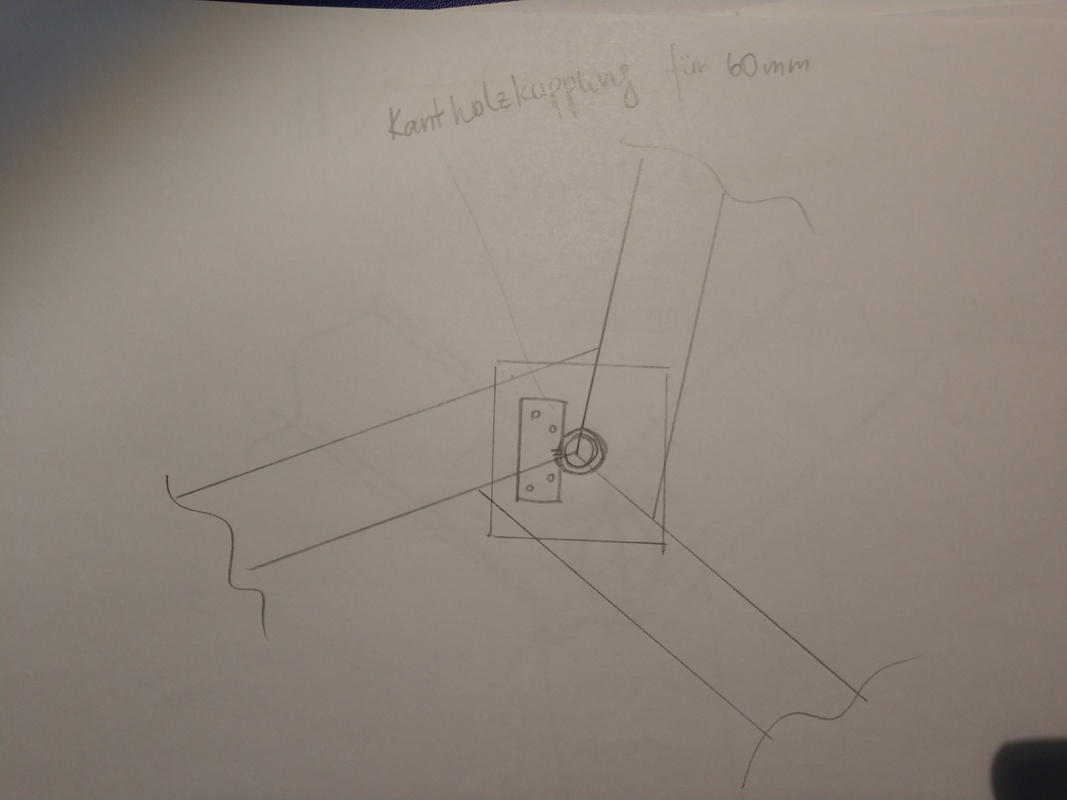 Kantholzkupplung für 60mm